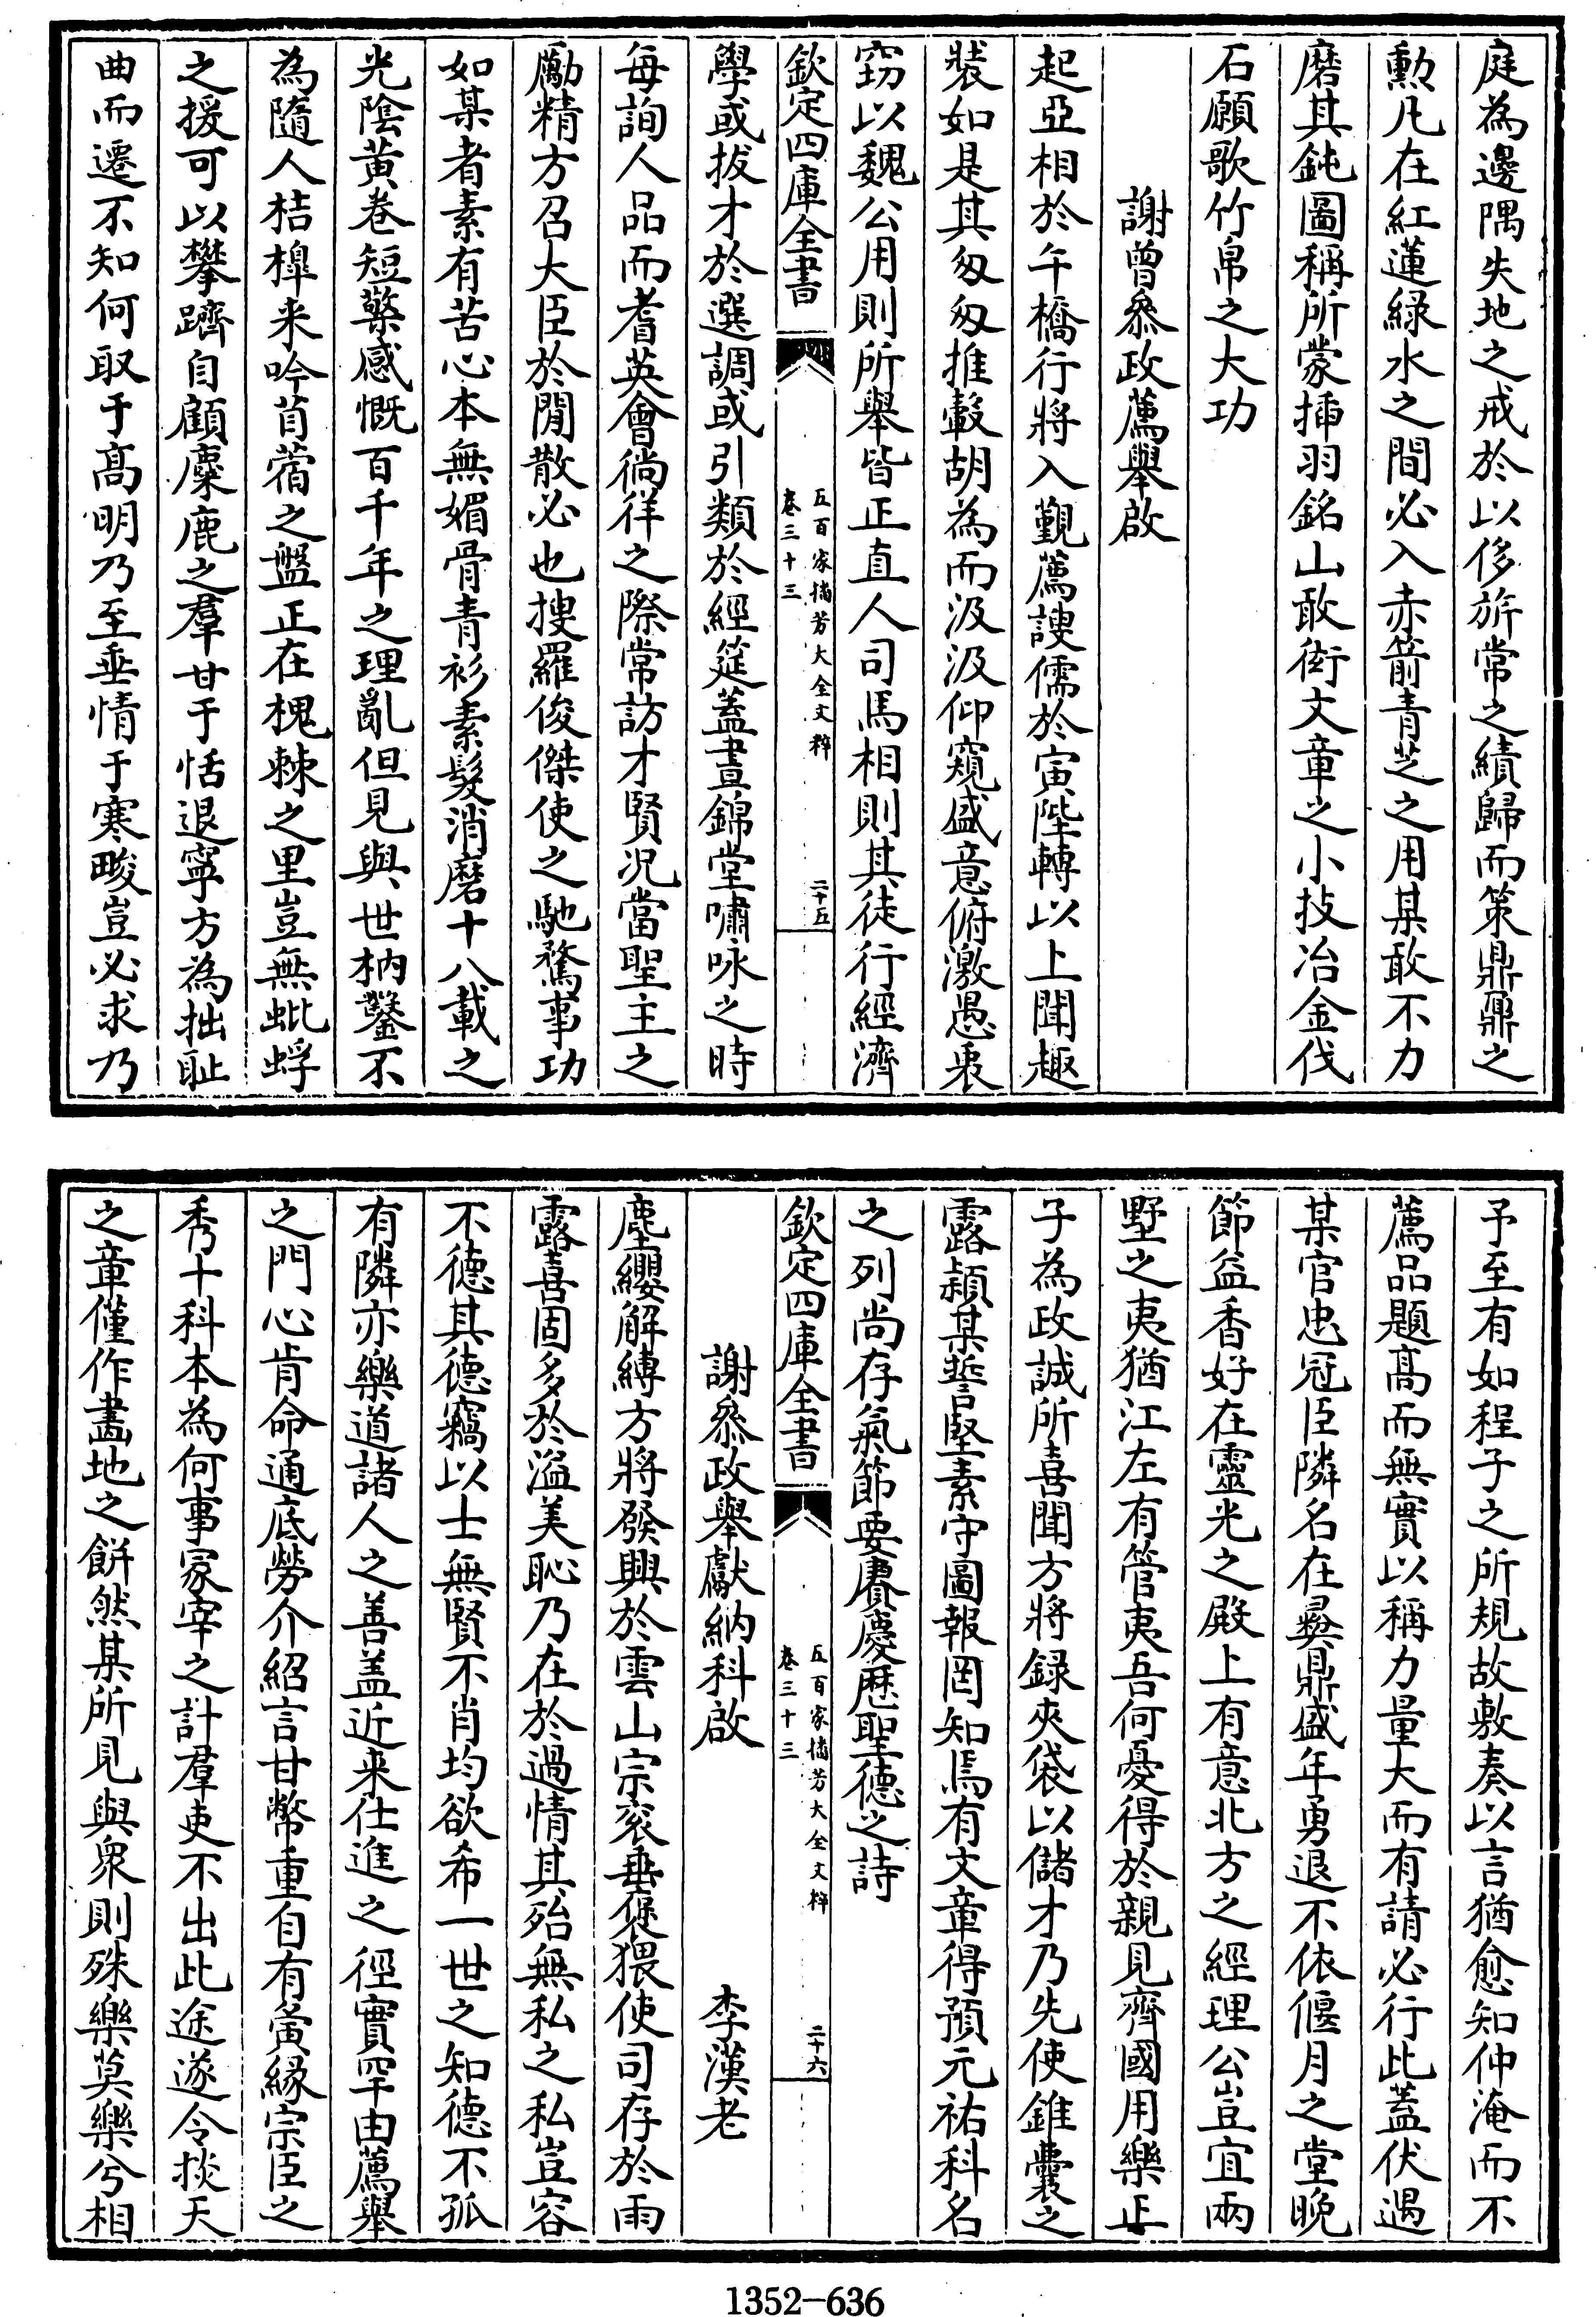 庭為邊隅失地之戒於以侈旂常之績歸而策鼎鼐之
勳凡在紅蓮緑水之間必入赤箭青芝之用某敢不力
磨其鈍圖稱所蒙揷羽銘山敢銜文章之小技冶金伐
石願歌竹帛之大功
謝曾叅政薦舉啟
起亞相於午橋行將入覲薦謏儒於寅陛轉以上聞趣
裝如是其匆匆推轂胡為而汲汲仰窺盛意俯激愚衷
竊以魏公用則所舉皆正直人司馬相則其徒行經濟
欽定四庫全書
五百家播芳大全文粹
卷三十三
二十五
學或拔才於選調或引類於經筵蓋晝錦堂嘯咏之時
每詢人品而耆英會徜徉之際常訪才賢况當聖主之
勵精方召大臣於閒散必也搜羅俊傑使之馳騖事功
如某者素有苦心本無媚骨青衫素髮消磨十八載之
光陰黃卷短檠感慨百千年之理亂但見與世枘鑿不
為隨人桔橰来吟苜蓿之盤正在槐棘之里豈無蚍蜉
之援可以攀躋自顧麋鹿之羣甘于恬退寧方為拙耻
曲而遷不知何取于髙明乃至垂情于寒畯豈必求乃
予至有如程子之所規故敷奏以言猶愈知仲淹而不
薦品題髙而無實以稱力量大而有請必行此蓋伏遇
某官忠冠臣隣名在彛鼎盛年勇退不依偃月之堂晚
節益香好在靈光之殿上有意北方之經理公豈宜兩
墅之夷猶江左有管夷吾何憂得於親見齊國用樂正
子為政誠所喜聞方將録夾袋以儲才乃先使錐囊之
露頴某誓堅素守圖報罔知焉有文章得預元祐科名
之列尚存氣節要賡慶歴聖德之詩
欽定四庫全書
五百家播芳大全文粹
卷三十三
二十六
謝叅政舉獻納科啟　李漢老
塵纓解縳方將發興於雲山宗衮垂襃猥使司存於雨
露喜固多於溢美恥乃在於過情其殆無私之私豈容
不德其德竊以士無賢不肖均欲希一世之知德不孤
有隣亦樂道諸人之善盖近来仕進之徑實罕由薦舉
之門心肯命通底勞介紹言甘幣重自有夤緣宗臣之
秀十科本為何事冢宰之計羣吏不出此途遂令掞天
之章僅作畵地之餅然某所見與衆則殊樂莫樂兮相
1352—636